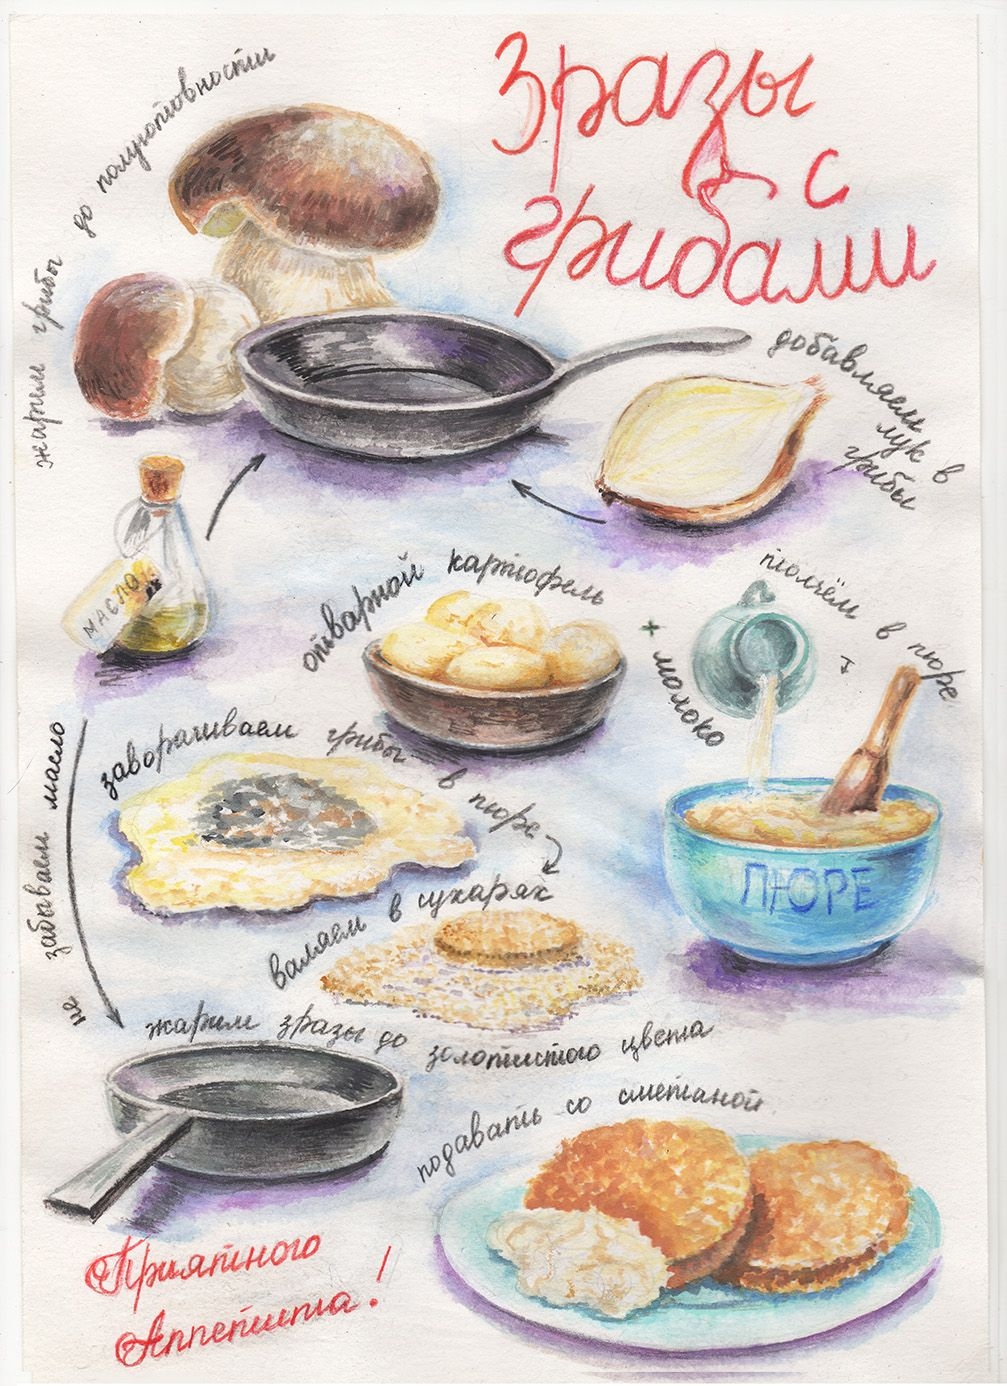 Зразы
с
грибами
жарим грибы до полуготовности
добавляем
лук в
грибы
МАСЛО
отварной картофель
+ молоко
толчём в пюре
заворачиваем грибы в пюре
ПЮРЕ
валяем в сухарях
не забываем масло
жарим зразы до золотистого цвета
подавать со сметаной
Приятного
Аппетита!